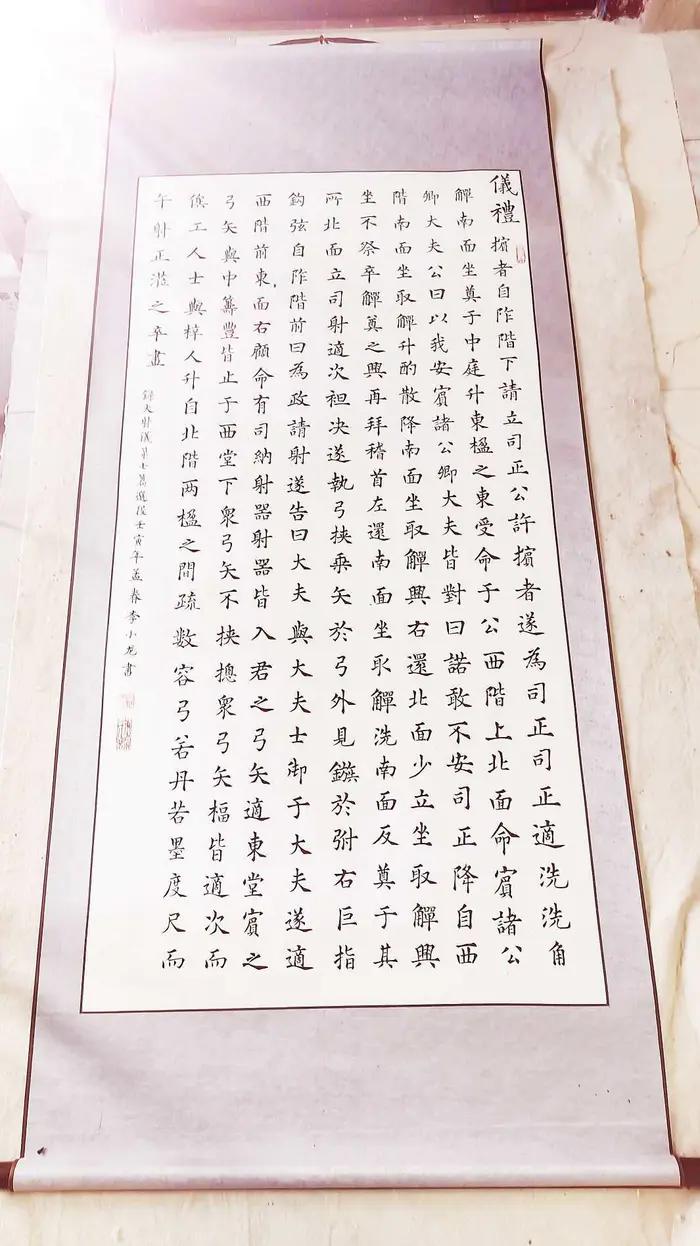 儀禮 擯者自阼階下請立司正公許擯者遂為司正司正適洗洗角
觶南面坐奠于中庭升東楹之東受命于公西階上北面命賓諸公
卿大夫公曰以我安賓諸公卿大夫皆對曰諾敢不安司正降自西
階南面坐取觶升酌散降南面坐取觶興右還北面少立坐取觶興
坐不祭卒觶奠之興再拜稽首左還南面坐取觶洗南面反奠于其
所北面立司射適次袒决遂執弓挾乘矢於弓外見鏃於弣右巨指
鈎弦自阼階前曰為政請射遂告曰大夫與大夫士御于大夫遂適
西階前東面右顧命有司納射器射器皆入君之弓矢適東堂賓之
弓矢與中籌豐皆止于西堂下衆弓矢不挾摠衆弓矢楅皆適次而
俟工人士與梓人升自北階两楹之間疏數容弓若丹若墨度尺而
午射正涖之卒畫
錄大射儀第七篇選段壬寅年孟春李小龙書